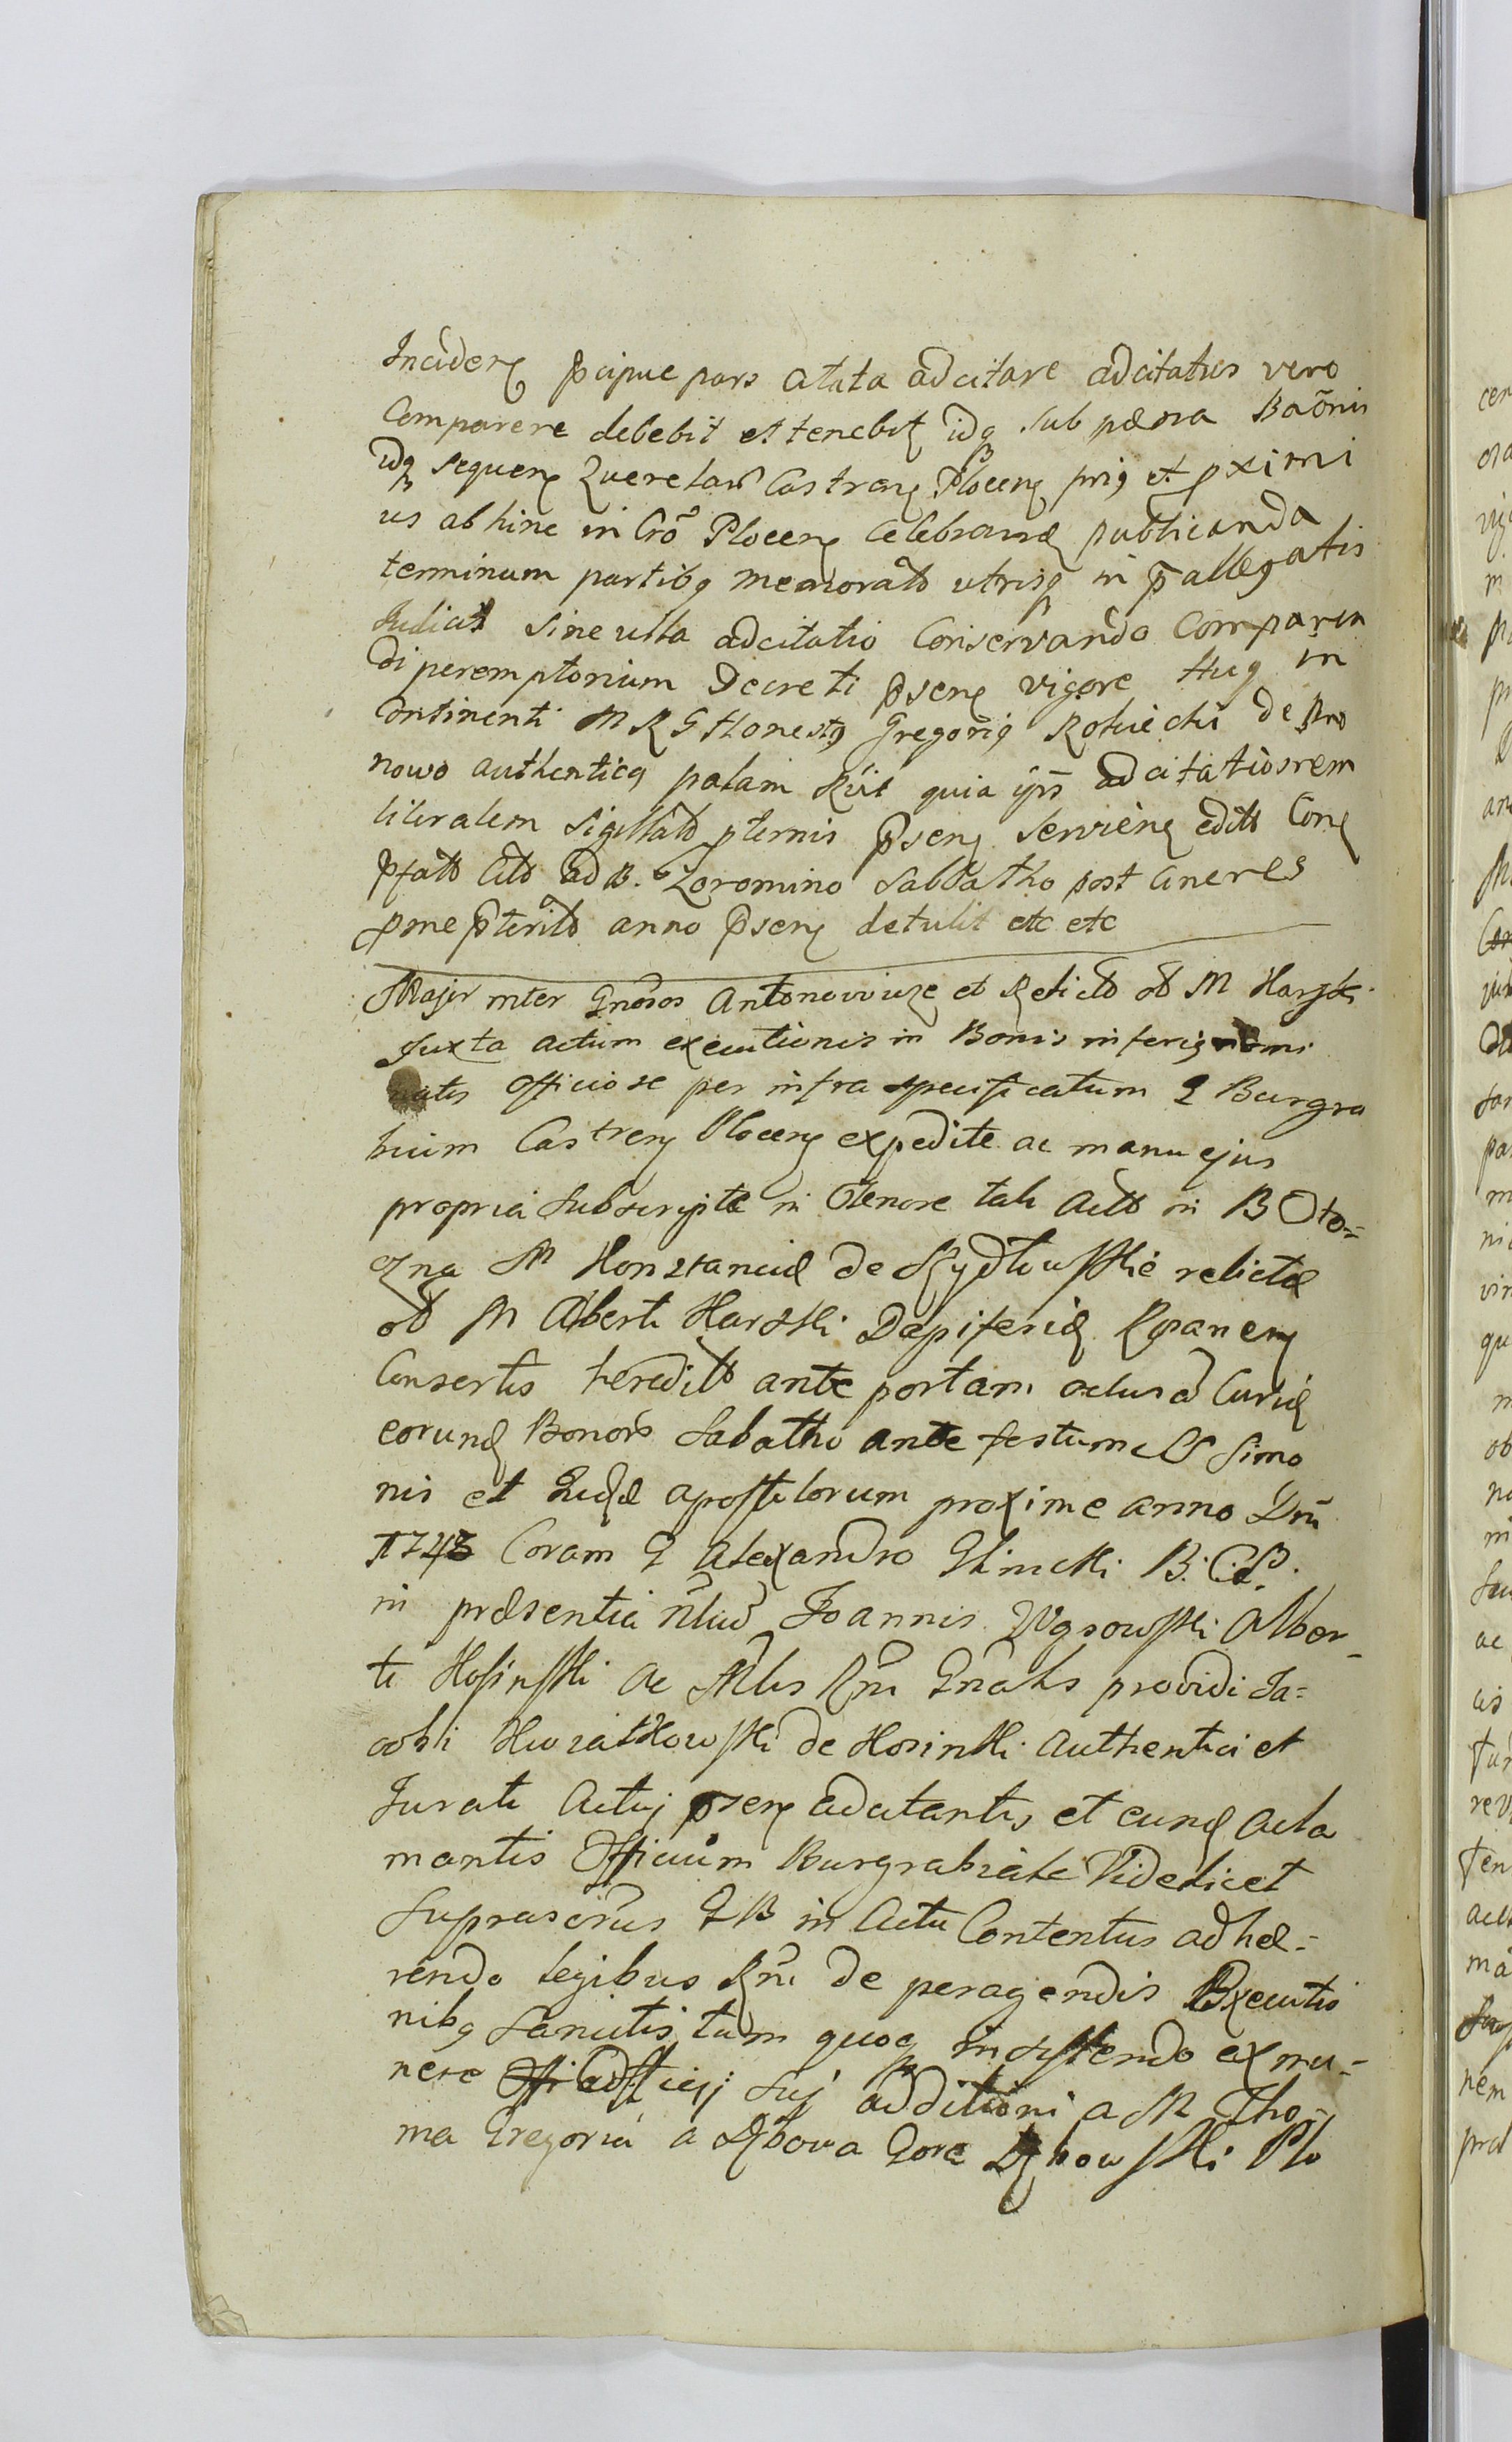 Incideng pcipue pars atata adcitare adcitatus vero
Comparere debebit et tenebit idq sub pæna Baõnis
idq sequeng Querelarũ Castreng Ploceng prig et pximi
us abhinc in Crõ Ploceng celebrand publicanda
terminum partibq memorato utrisq in p allegatis
Judicat sine ulla adcitatio Conservando Comparen
di peremptorium Decreti pseng vigore Huq in
Continenti MRG Honestq Gregoriq de
nowo authenticq palam Rüit quia ijs adcitationem
literalem sigillato pternis pseng serviene edito Cong
pfato Cito ad B. Zoromino Sabbatho post Cineres
pme pterito anno pseng detulit etc etc
Major inter Gnosos Antonowicze et Relicto ol M Harski
Juxta actum executionis in Bonis inferiq nomi
natis officiose per infra specificatum G Burgra
bium Castreng Ploceng expedite ac manu ejus
propria Subscripte in tenore tali Acto in B Oto=
czna M Konstanciæ de Szydłowskie relictæ
ol M Alberti Harski Dapiferidæ Rozaneng
Consortis heredito ante portam aclusã Curiæ
eorund Bonorũ Sabatho ante festum SS Simo
nis et Judæ apostolorum proxime anno Dni
1743 Coram G Alexandro Glinicki B.C.P.
in præsentia Nliũ Joannis Wgsowski Alber-
ti Kosinski ac Mlis Rni Gnalis providi Ja=
cobi Kwiatkowski de Kosinki Authentici et
Jurati Actuj pseng adcitantis et eund acla
mantis Officium Burgrabiale Videlicet
Suprascrius GB in Actu Contentus adhæ=
rendo legibus Rni de peragendis Executio
nibq Sancitis tum quoq insistendo exmu=
nere officij suj additioni a M Tho-
ma Gregoriu a Dębowa Gora Dębowski Plo